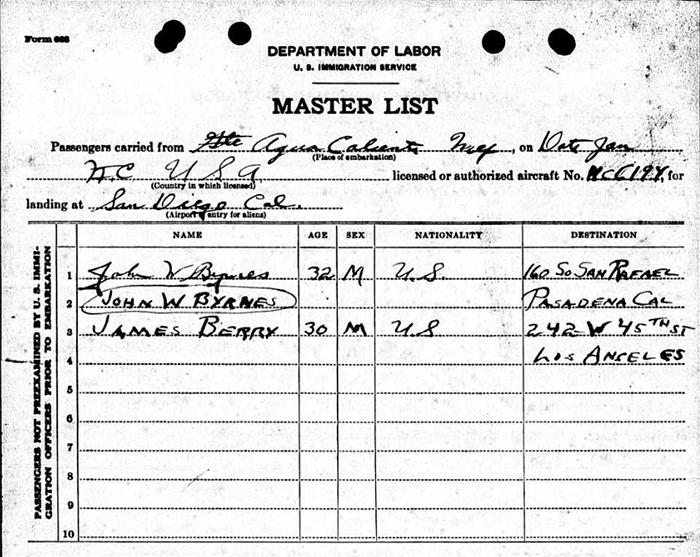 Form 668
DEPARTMENT OF LABOR
U. S. IMMIGRATION SERVICE
MASTER LIST
Passengers carried from Agua Caliente Mex, on Date Jan
(Place of embarkation)
U S A licensed or authorized aircraft No. for
(Country in which licensed)
landing at San Diego Cal.
(Airport entry for aliens)
NAME AGE SEX NATIONALITY DESTINATION
PASSENGERS NOT PREEXAMINED BY U. S. IMMI-
GRATION OFFICERS PRIOR TO EMBARKATION
1 John W Byrnes 32 M U.S. 160 SO SAN RAFAEL
2 JOHN W BYRNES PASADENA CAL
3 JAMES BERRY 30 M US 242 W 45TH ST
4 LOS ANGELES
5
6
7
8
9
10